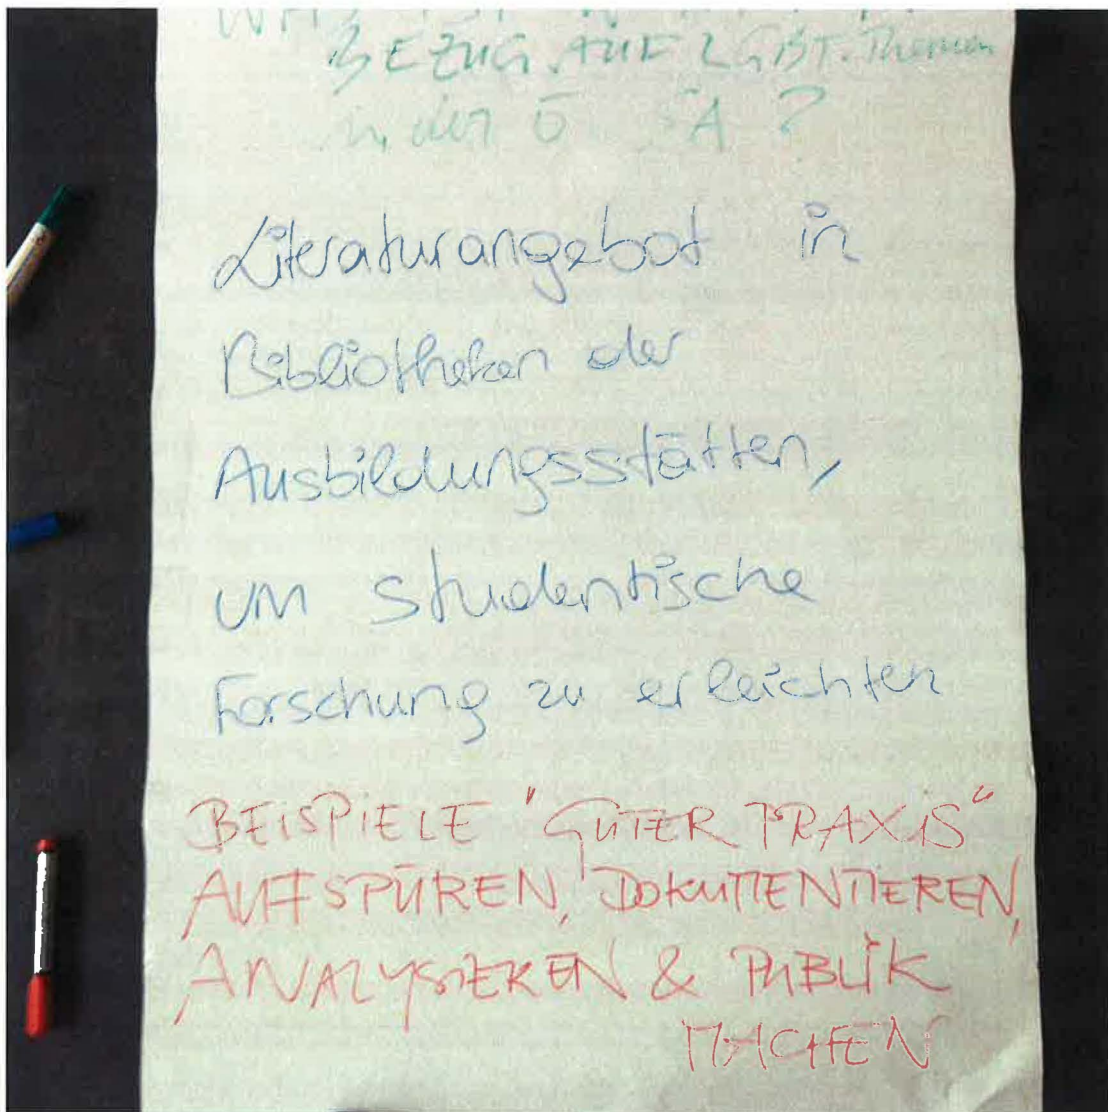 BEZUG AUF LGBT-Themen
in der Ö SA ?
Literaturangebot in
Bibliotheken der
Ausbildungsstätten,
um studentische
Forschung zu erleichten
BEISPIELE "GUTER PRAXIS"
AUFSPÜREN, DOKUMENTIEREN,
ANALYSIEREN & PUBLIK
MACHEN